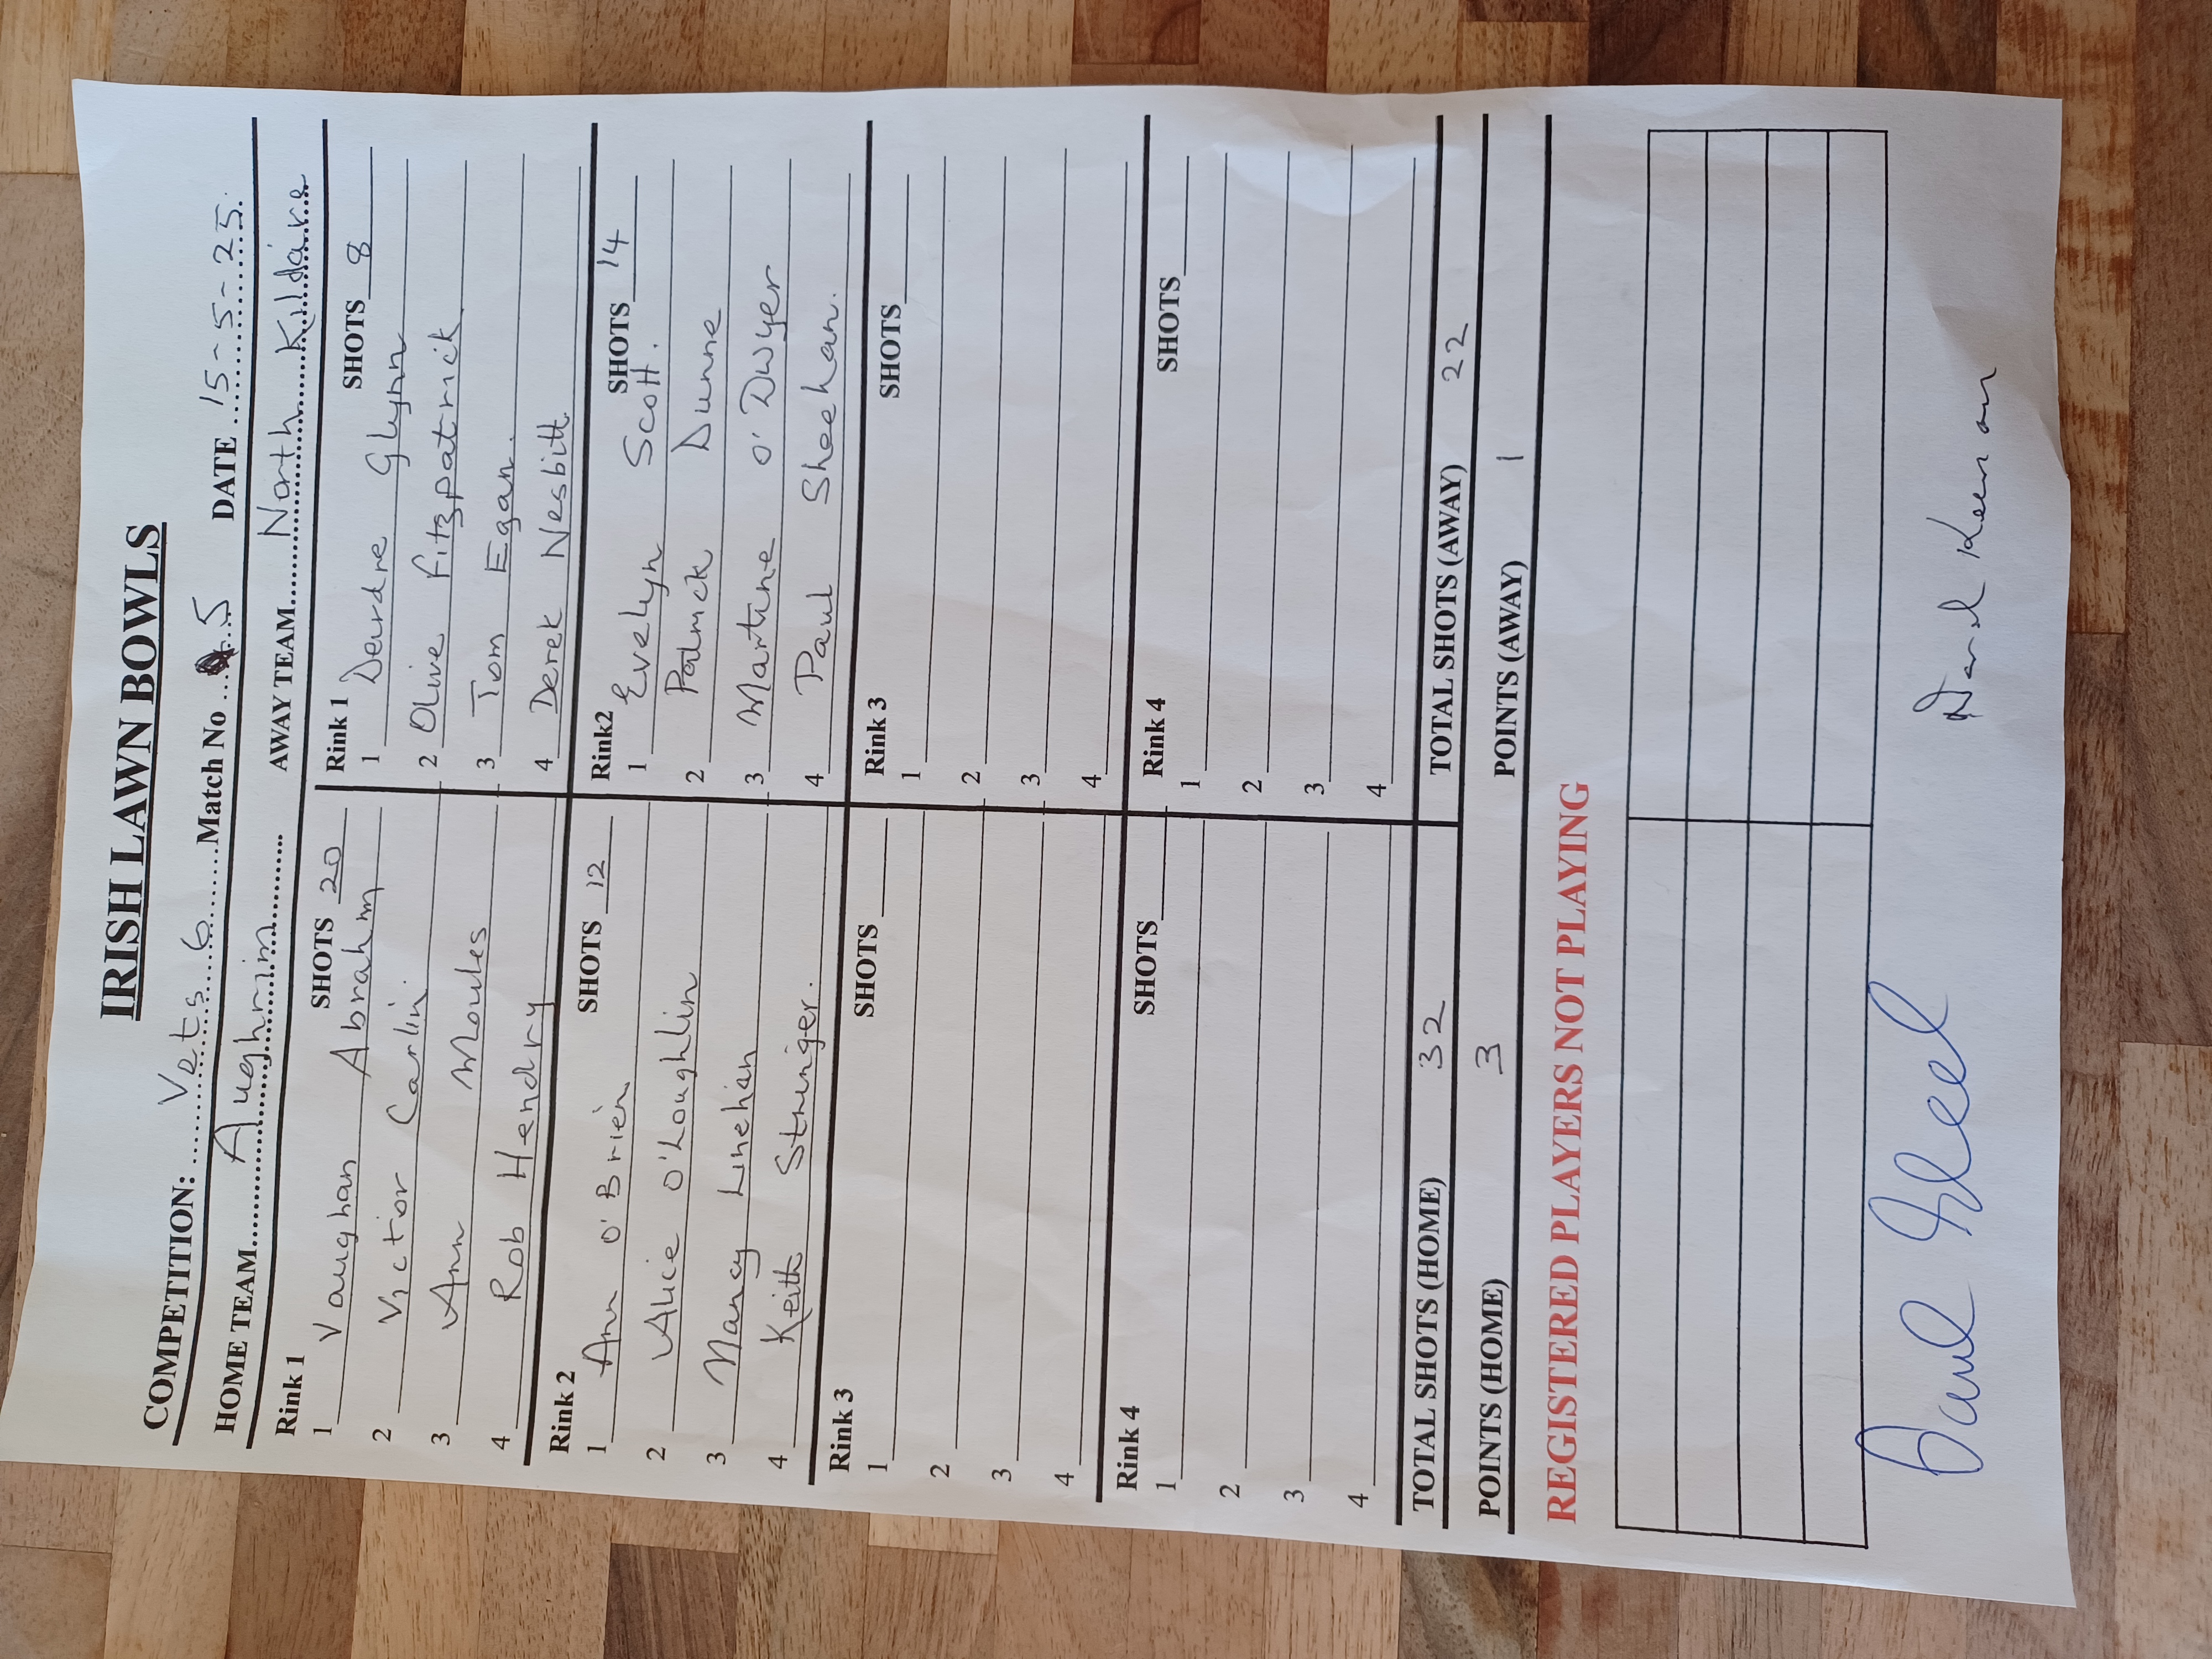 IRISH LAWN BOWLS
COMPETITION: Vets 6 Match No 5 DATE 15-5-25.
HOME TEAM Aughrim AWAY TEAM North Kildare
Rink 1 SHOTS 20 Rink 1 SHOTS 8
1 Vaughan Abrahm 1 Deirdre Glynn
2 Victor Carlin. 2 Olive Fitzpatrick
3 Ann Moules 3 Tom Egan.
4 Rob Hendry 4 Derek Nesbitt
Rink 2 SHOTS 12 Rink2 SHOTS 14
1 Ann O'Brien 1 Evelyn Scott.
2 Alice O'Loughlin 2 Patrick Dunne
3 Nancy Linehan 3 Martine O'Dwyer
4 Keith Stringer. 4 Paul Sheehan.
Rink 3 SHOTS Rink 3 SHOTS
1 1
2 2
3 3
4 4
Rink 4 SHOTS Rink 4 SHOTS
1 1
2 2
3 3
4 4
TOTAL SHOTS (HOME) 32 TOTAL SHOTS (AWAY) 22
POINTS (HOME) 3 POINTS (AWAY) 1
REGISTERED PLAYERS NOT PLAYING